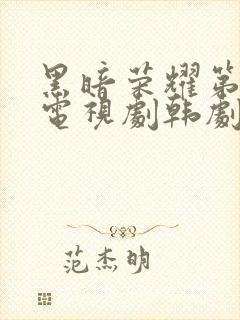 黑暗荣耀第
電視劇韩劇
范杰明